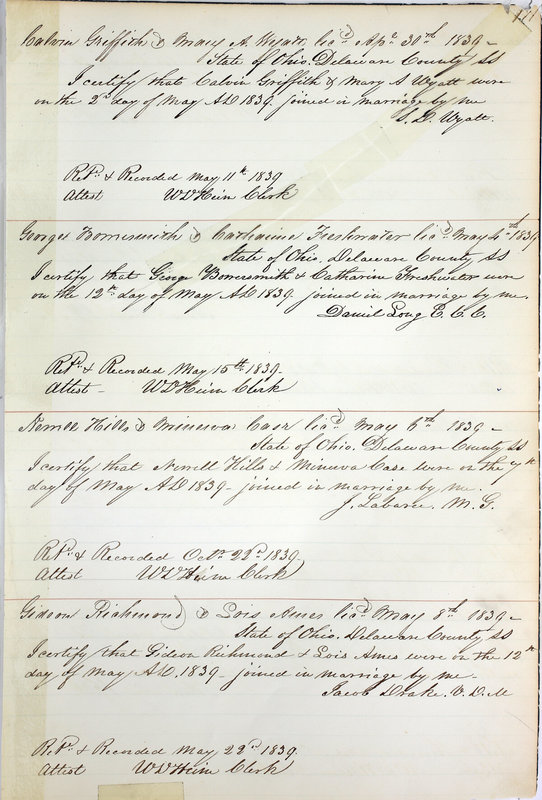 Calvin Griffith & Mary A. Wyatt lic'd Apr. 30th 1839 -
State of Ohio. Delaware County SS
I certify that Calvin Griffith & Mary S. Wyatt were
on the 2nd day of May AD 1839. joined in marriage by me
S. D. Wyatt.
Ret'd & Recorded May 11th 1839
Attest W D Heim Clerk
George Bowersmith & Catharine Freshwater lic'd May 4th 1839
State of Ohio, Delaware County SS
I certify that George Bowersmith & Catharine Freshwater were
on the 12th day of May AD 1839. joined in marriage by me.
Daniel Long E. C. C.
Ret'd & Recorded May 15th 1839.
Attest - W D Heim Clerk
Hills & Minerva Case lic'd May 6th 1839 -
State of Ohio. Delaware County SS
I certify that Hills & Minerva Case were on the 7th
day of May AD 1839 - joined in marriage by me.
J. Labaree. M. G.
Ret'd & Recorded Octr 22nd 1839
Attest W D Heim Clerk
Gideon Richmond & Lois Ames lic'd May 8th 1839 -
State of Ohio, Delaware County SS
I certify that Gideon Richmond & Lois Ames were on the 12th
day of May AD. 1839 - joined in marriage by me -
Jacob Drake. V. D. M
Ret'd & Recorded May 22nd 1839.
Attest W D Heim Clerk